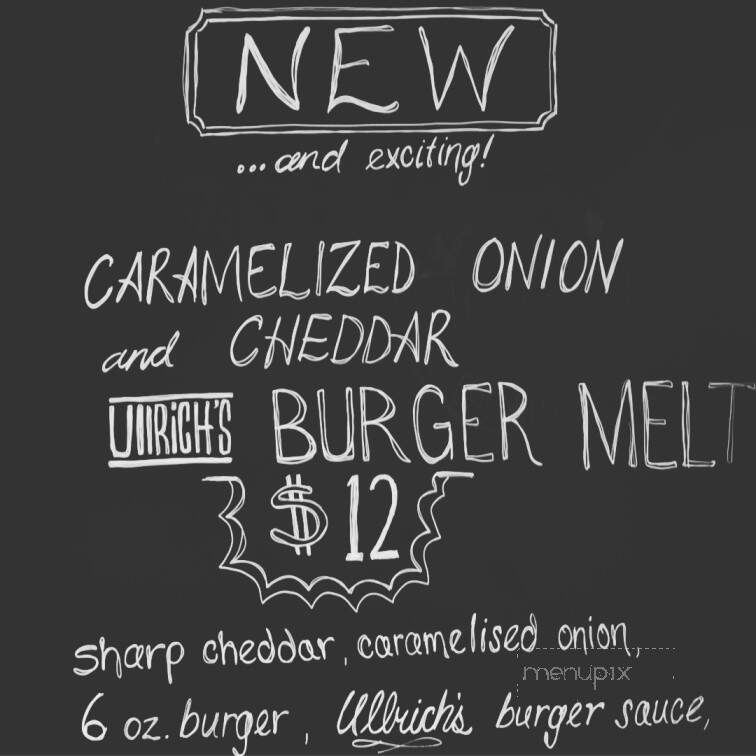 NEW
...and exciting!
CARAMELIZED ONION
and CHEDDAR
Ullrich's BURGER MELT
$12
sharp cheddar, caramelised onion,
menupix
6 oz. burger, Ullrich's burger sauce,